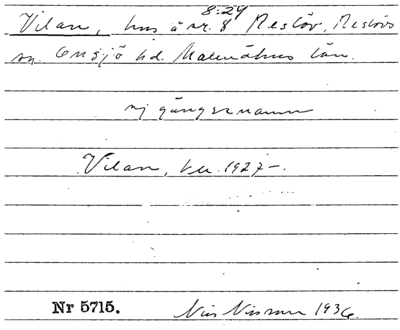 8:24
Vilan, hus å nr. 8 Reslöv, Reslövs
sn. Onsjö hd. Malmöhus län.
ej gängse namn
Vilan, hu. 1927-.
Nr 5715.
Nils Nilsson 1936.